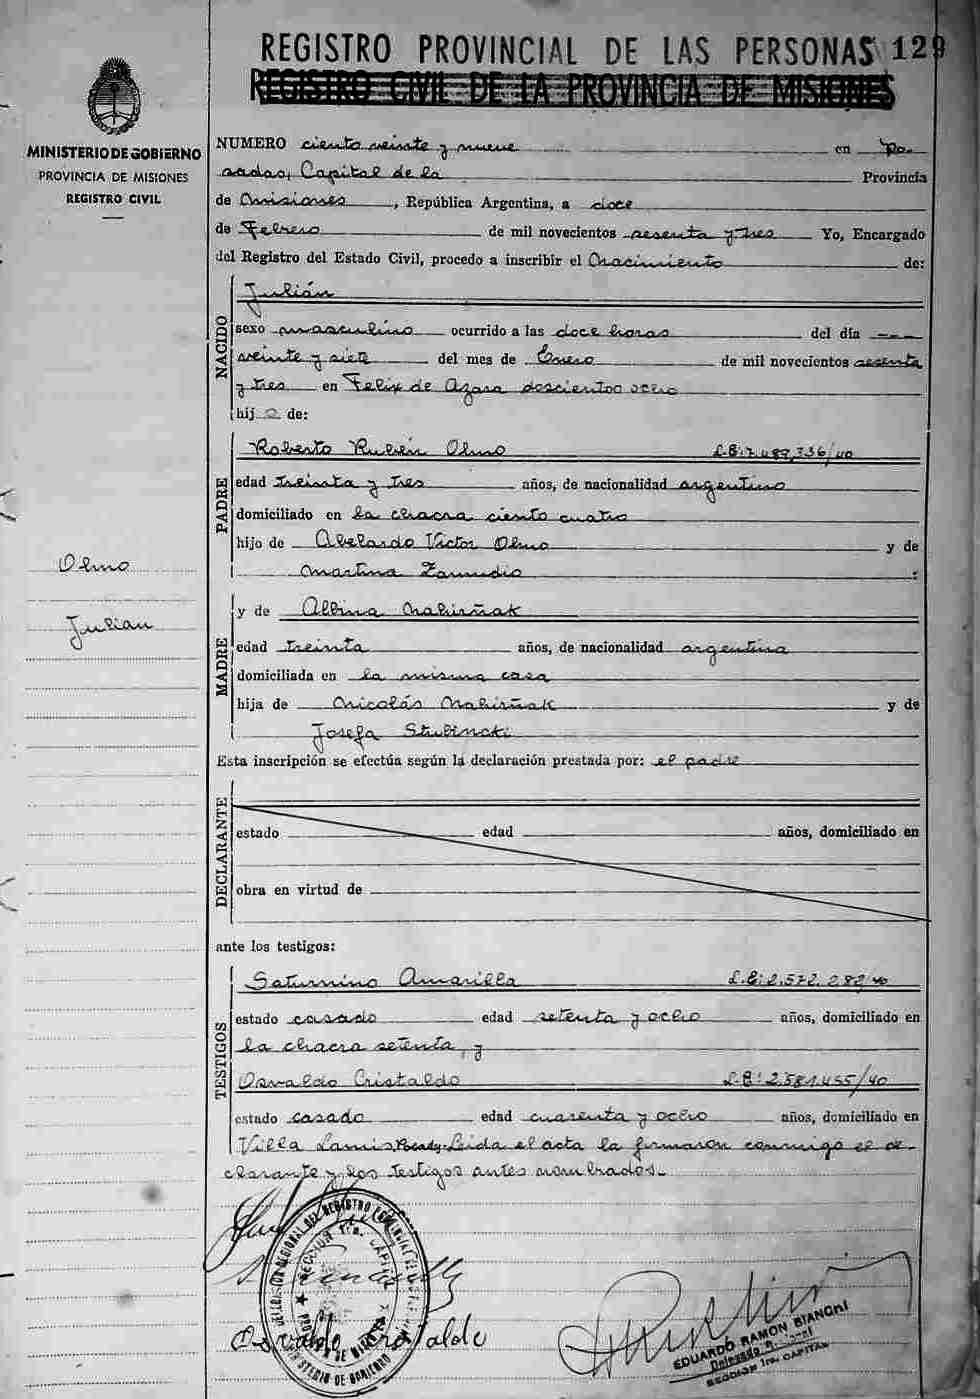 REGISTRO PROVINCIAL DE LAS PERSONAS 129
REGISTRO CIVIL DE LA PROVINCIA DE MISIONES
MINISTERIO DE GOBIERNO
PROVINCIA DE MISIONES
REGISTRO CIVIL
NUMERO ciento veinte y nueve en Po-
sadas, Capital de la Provincia
de Misiones, República Argentina, a doce
de Febrero de mil novecientos sesenta y tres Yo, Encargado
del Registro del Estado Civil, procedo a inscribir el Nacimiento de:
NACIDO
Julián
sexo masculino ocurrido a las doce horas del día ---
veinte y siete del mes de Enero de mil novecientos sesenta
y tres en Felix de Azara doscientos ocho
hijo de:
PADRE
Roberto Rubén Olmo L.E: 7.489.336/40
edad treinta y tres años, de nacionalidad argentino
domiciliado en la chacra ciento cuatro
hijo de Abelardo Victor Olmo y de
Martina Zamudio :
Olmo
Julian
MADRE
y de Albina Nahirñak
edad treinta años, de nacionalidad argentina
domiciliada en la misma casa
hija de Nicolás Nahirñak y de
Josefa Stubincki
Esta inscripción se efectúa según la declaración prestada por: el padre
DECLARANTE
estado edad años, domiciliado en
obra en virtud de
ante los testigos:
TESTIGOS
Saturnino Amarilla L.E: 2.572.282/40
estado casado edad setenta y ocho años, domiciliado en
la chacra setenta, y
Osvaldo Cristaldo L.E: 2.581.455/40
estado casado edad cuarenta y ocho años, domiciliado en
Villa Lamis, Leida el acta la firmaron conmigo el de-
clarante y los testigos antes nombrados.-
SECCION 1ra. CAPITAL
EDUARDO RAMON BIANCHI
SECCION 1ra. CAPITAL